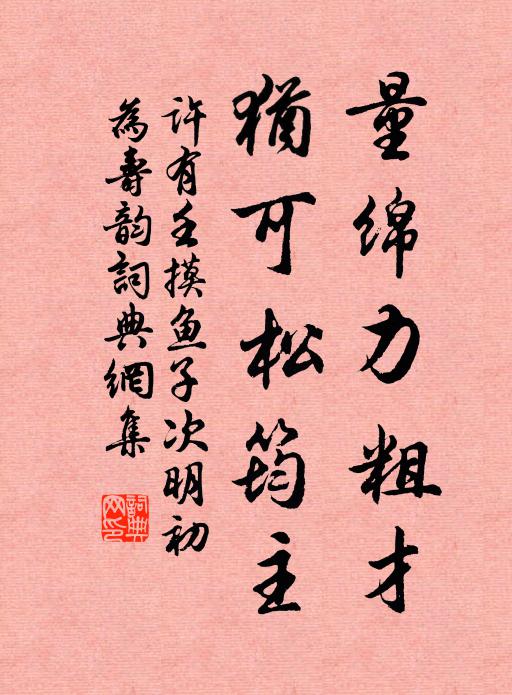 量绵力粗才
犹可松筠主
许有壬摸鱼子次明初
為壽韵詞典網集
詞典網印